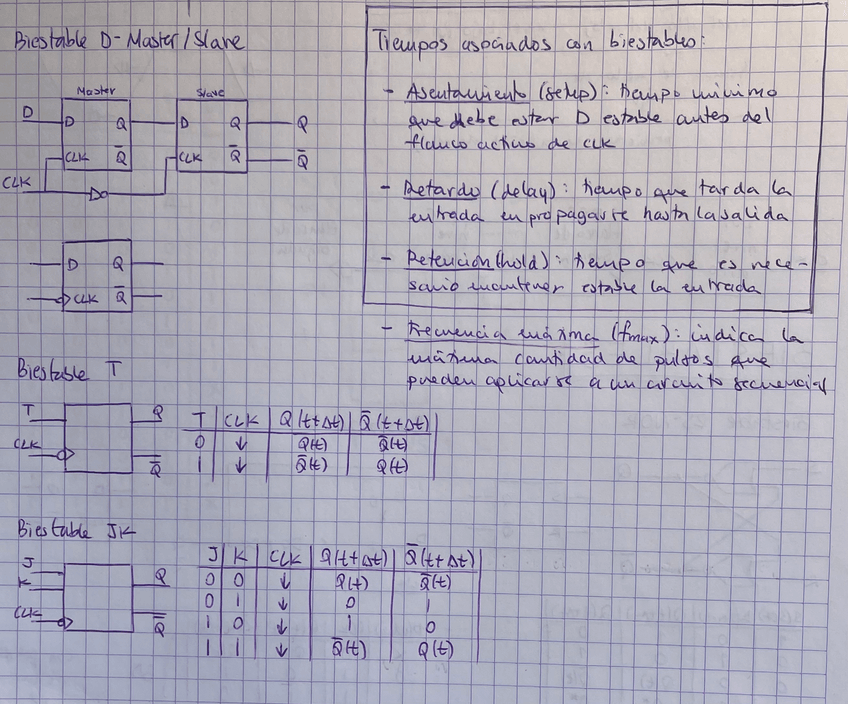 Biestable D-Master/Slave
Master
Slave
D
D Q
D Q
Q
CLK Q̅
CLK Q̅
Q̅
CLK
D Q
CLK Q̅
Tiempos asociados con biestables:
- Asentamiento (setup): tiempo mínimo
que debe estar D estable antes del
flanco activo de CLK
- Retardo (delay): tiempo que tarda la
entrada en propagarse hasta la salida
- Retención (hold): tiempo que es nece-
sario mantener estable la entrada
- Frecuencia máxima (fmax): indica la
máxima cantidad de pulsos que
pueden aplicarse a un circuito secuencial
Biestable T
T
Q
CLK
Q̅
T CLK Q(t+Δt) Q̅(t+Δt)
0 ↓ Q(t) Q̅(t)
1 ↓ Q̅(t) Q(t)
Biestable JK
J
K
Q
CLK
Q̅
J K CLK Q(t+Δt) Q̅(t+Δt)
0 0 ↓ Q(t) Q̅(t)
0 1 ↓ 0 1
1 0 ↓ 1 0
1 1 ↓ Q̅(t) Q(t)